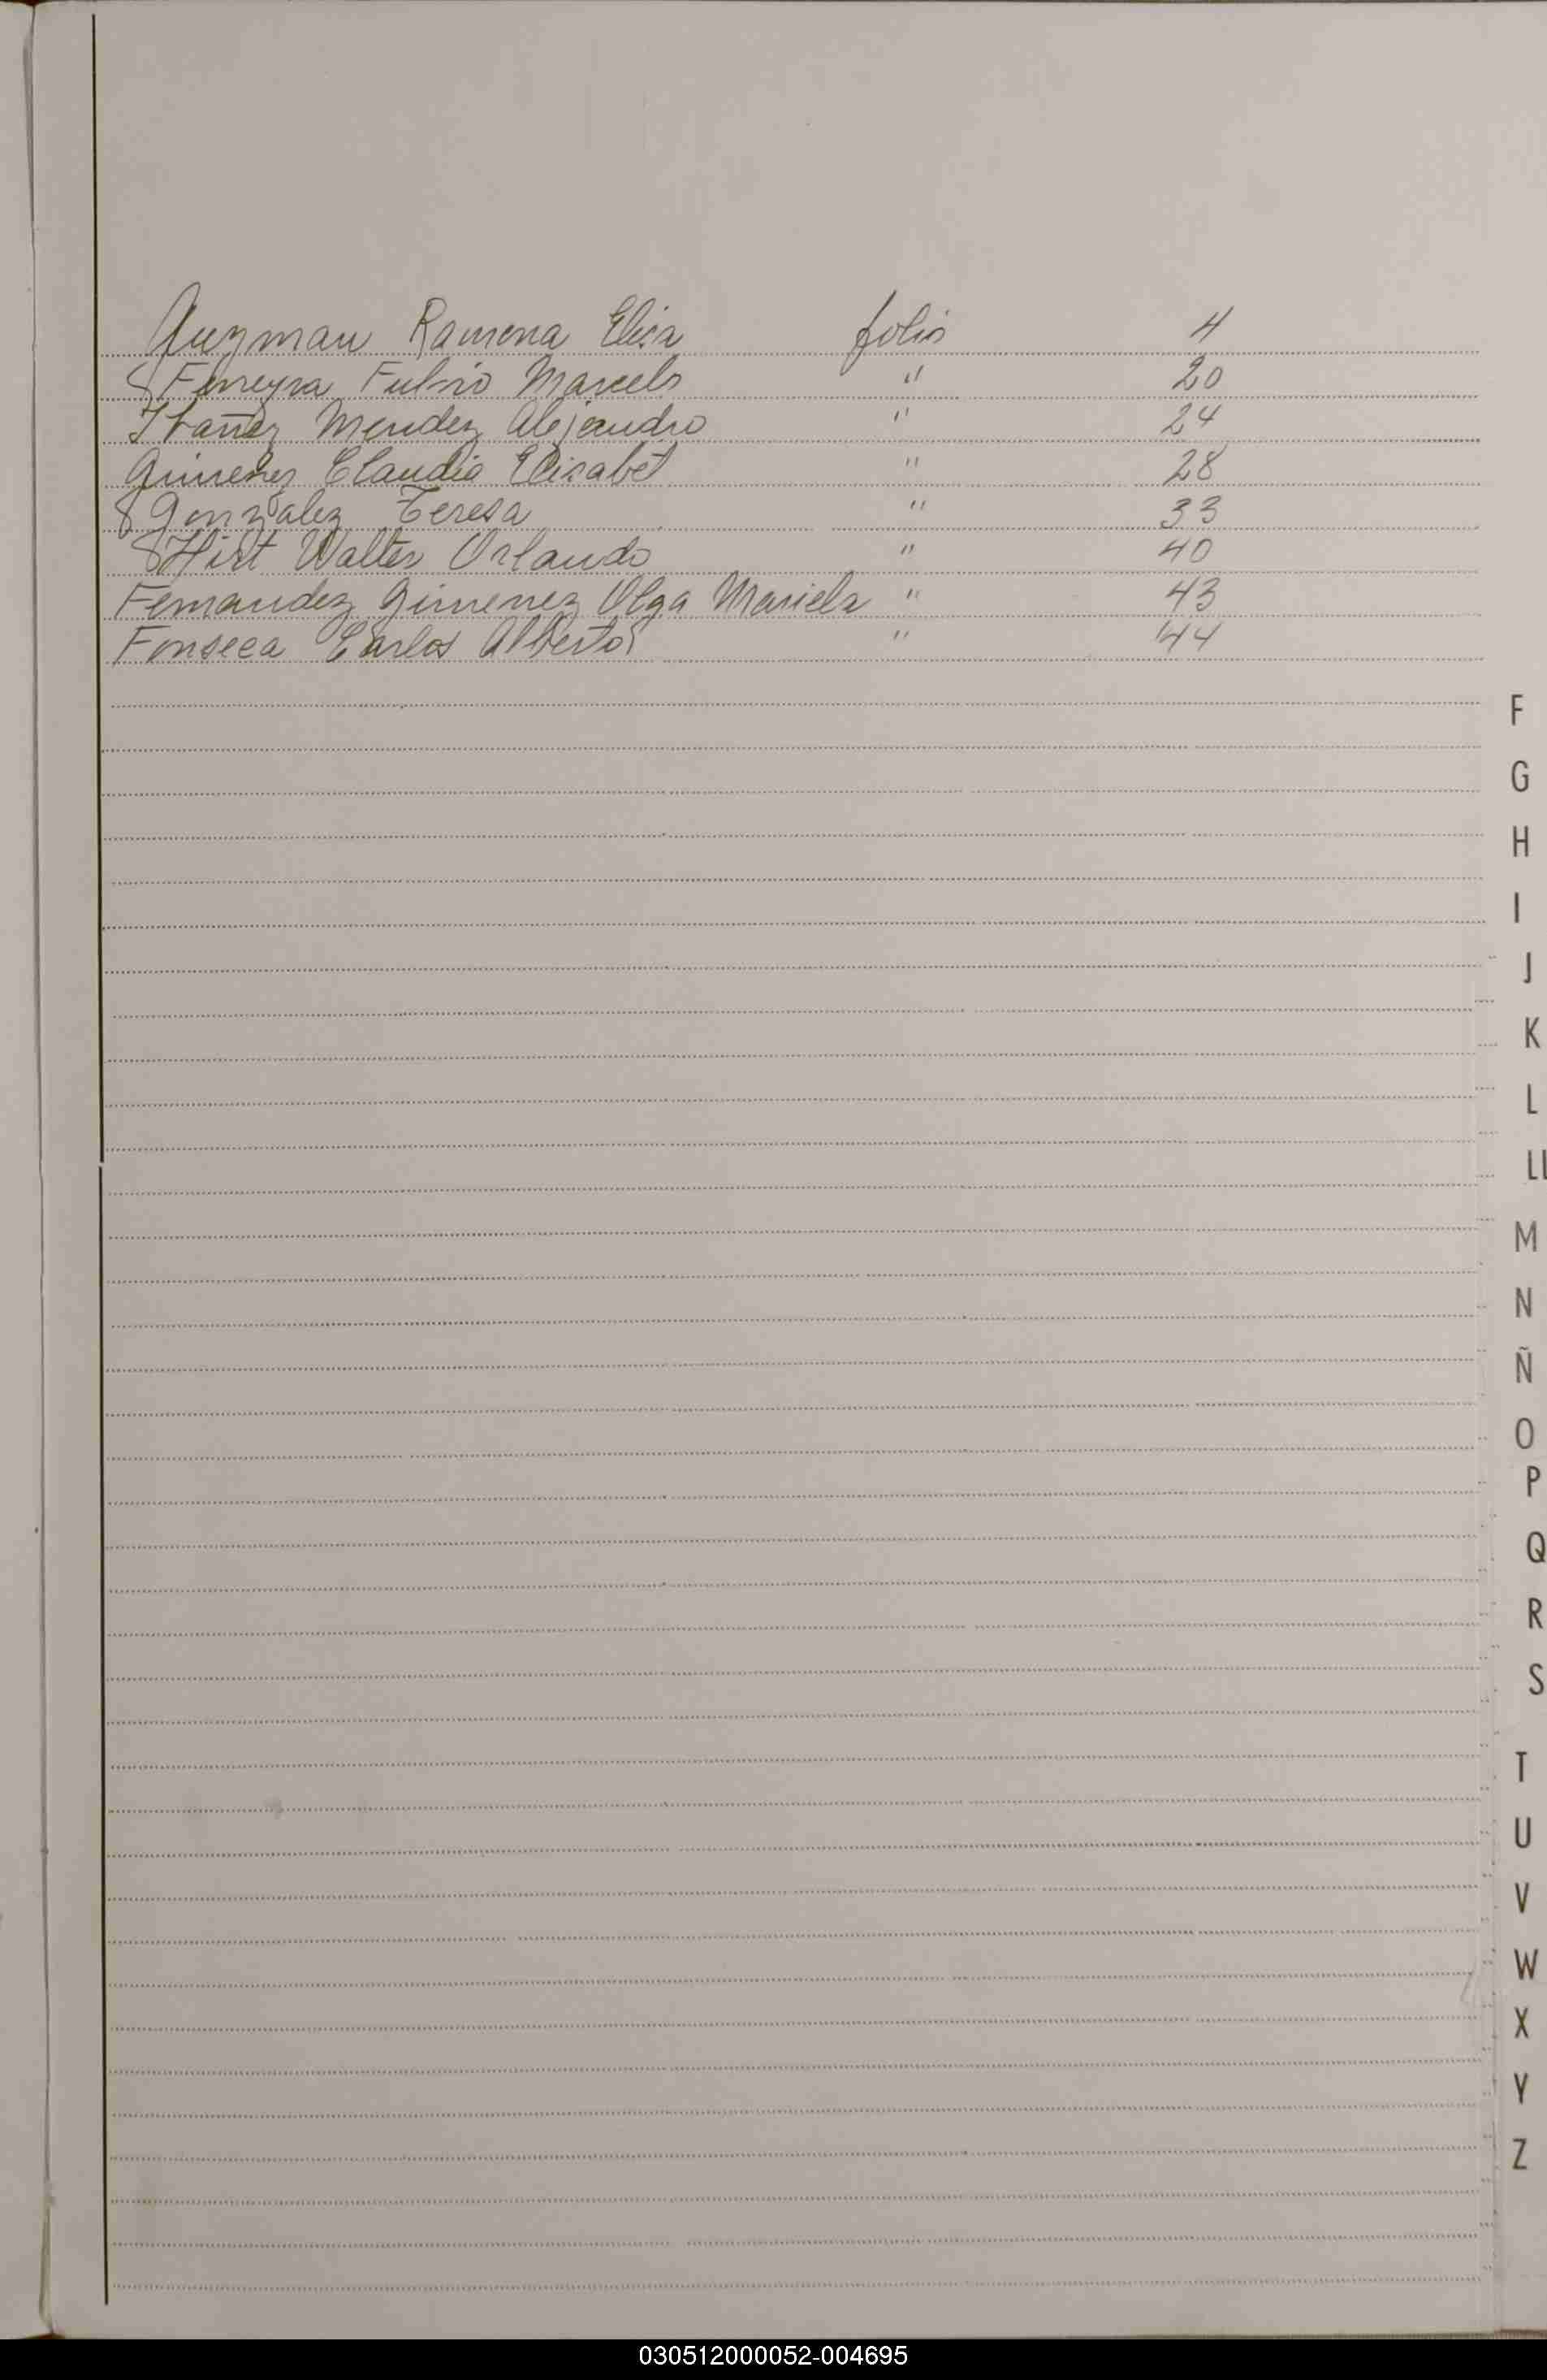 Guzman Ramona Elisa folio 4
Ferreyra Fulvio Marcelo " 20
Ibañez Mendez Alejandro " 24
Gimenez Claudia Elisabet " 28
Gonzalez Teresa " 33
Hirt Walter Orlando " 40
Fernandez Gimenez Olga Mariela " 43
Fonseca Carlos Alberto " 44
F
G
H
I
J
K
L
LL
M
N
Ñ
O
P
Q
R
S
T
U
V
W
X
Y
Z
030512000052-004695